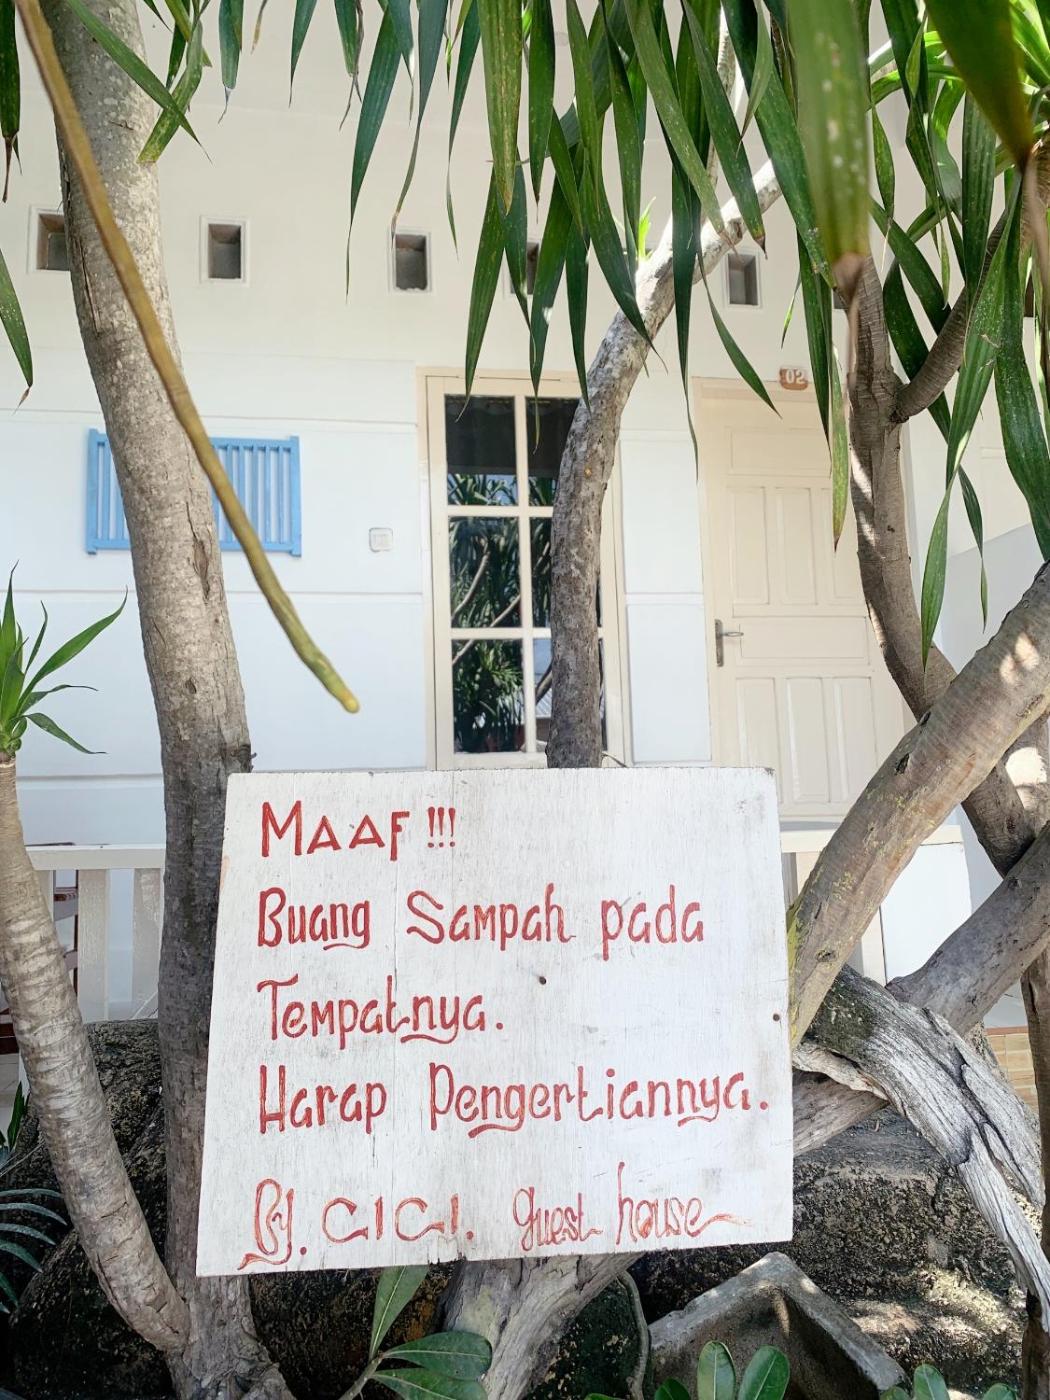 02
MAAF !!!
Buang Sampah pada
Tempatnya.
Harap Pengertiannya.
By. CICI. guest house